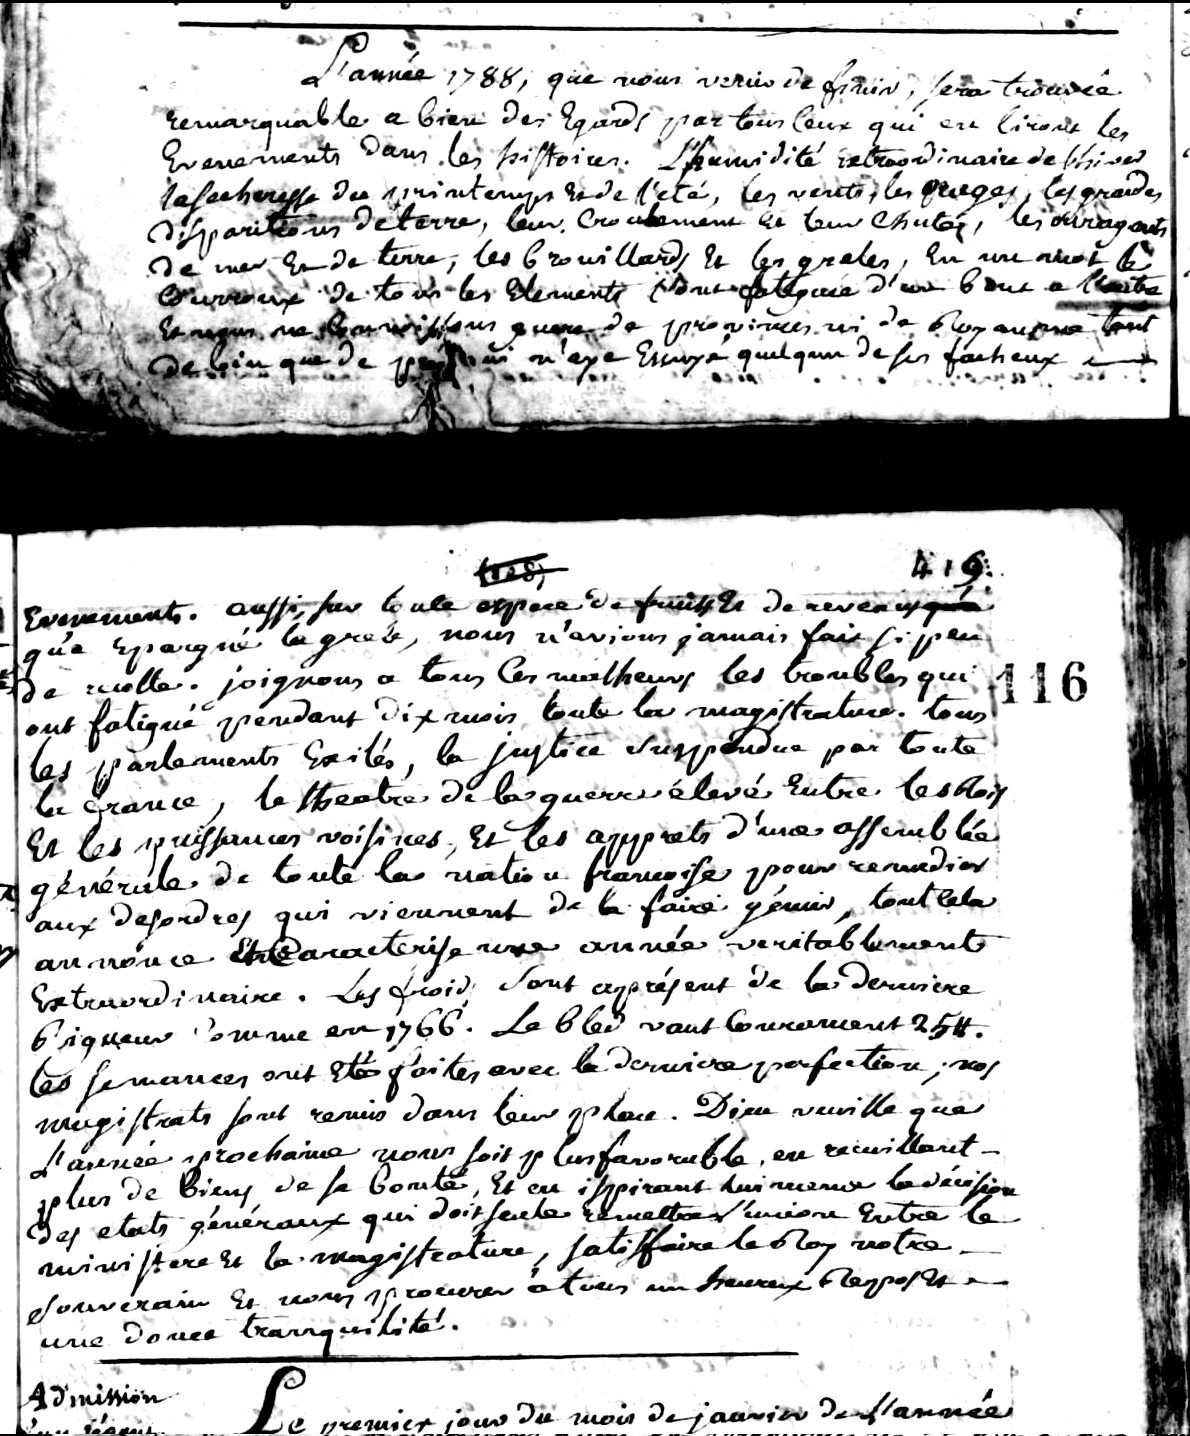 L'année 1788, que nous venons de finir, sera trouvée
remarquable a bien des Egards par tous ceux qui en liront les
Evenements dans les histoires. L'humidité extraordinaire de l'hiver
la secheresse du printemps et de l'eté, les vents, les orages, les grandes
disparitions de terre, leur croulement et leur chute, les ouragants
de mer Et de terre, les brouillards Et les greles, En un mot le
Courroux de tous les Elements l'ont fatiguée d'un bout a l'autre
Et nous ne connoissons guere de provinces ni de Royaume tant
de loin que de près qui n'aye Essuyé quelqun de ses facheux
(118)
419.
Evenements. aussi, sur toute espece de fruits Et de revenus
qu'a Epargné la grele, nous n'avions jamais fait si peu
de recolte. joignons a tous ces malheurs les troubles qui
116
ont fatigué pendant dix mois toute la magistrature. tous
les parlements Exilés, la justice suspendue par toute
la france, le theatre de la guerre élevé Entre les Rois
Et les puissances voisines, Et les apprets d'une assemblée
générale de toute la nation francoise pour remedier
aux desordres qui viennent de la faire gémir, tout cela
annonce Et Caracterise une année veritablement
Extraordinaire. Les froids sont apresent de la derniere
rigueur comme en 1766. Le bled vaut couramment 25 ₶.
les semances ont Eté faites avec la derniere perfection; nos
magistrats sont remis dans leur place. Dieu veuille que
L'année prochaine nous soit plus favorable, en recuillant
plus de biens de sa bonté, Et en ispirant luimeme la décision
des etats généraux qui doit seule remettre l'union Entre le
ministere Et la magistrature, satisfaire le Roy notre
souverain Et nous procurer a tous un heureux Repos Et
une douce tranquilité.
Admission
Le premier jour du mois de janvier de l'année